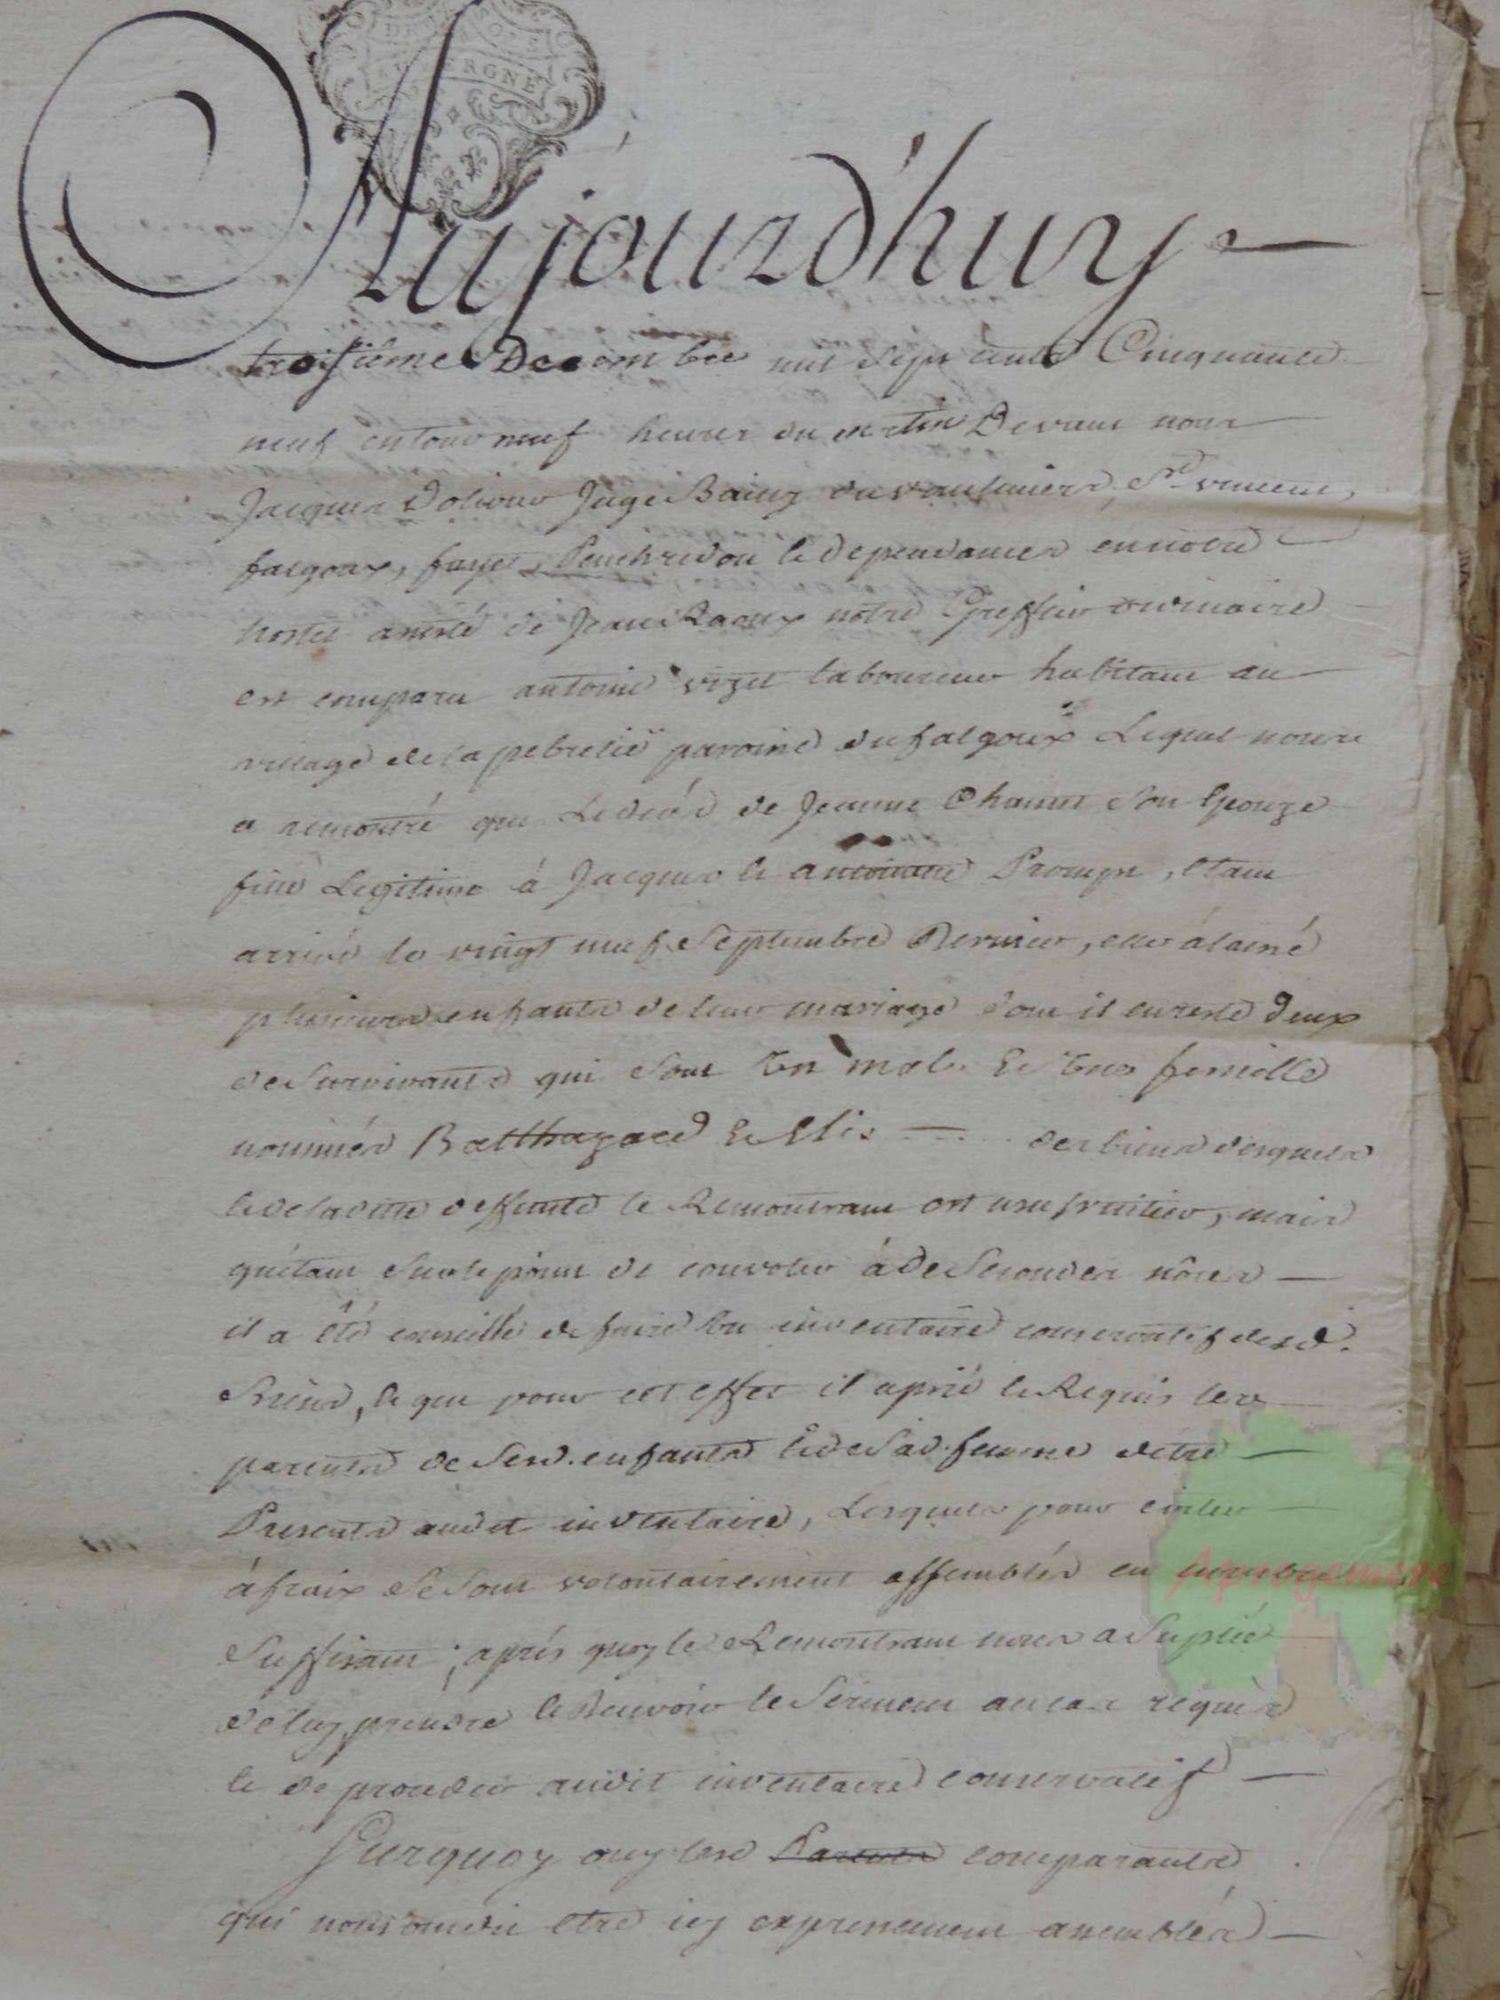 AUVERGNE
Aujourd'huy
troisiéme Decembre mil sept cents Cinquante
neuf entour neuf heures du matin Devant nous
Jacques Dolivier Juge Bailly du vaulmiers, St. vincent,
falgoux, fayet, et dependances en notre
hostel assisté de Jean Raoux notre Greffier ordinaire
est comparu antoine vizet laboureur habitant au
village de la pebrelie paroisse du falgoux Lequel nous
a remontré que Le décés de Jeanne Chanut son Epouze
fille Legitime á Jacques et antoinette Prompt, etant
arrivé le vingt neuf Septembre Dernier, elle á laissé
plusieurs enfants de leur mariage dont il en reste deux
de survivants qui sont Un male Et Une femelle
nommés Balthazard Et Elis — des biens desquels
et de laditte deffunte le Remontrant est usufruitier, mais
qu'étant sur le point de convoler á de secondes nôces —
il a êté conseillé de faire Un inventaire conservatif desd.
Biens, et que pour cet effet il a prié et Requis les
parents de sesd. enfants Et de sad. femme detre —
Presents audit inventaire, Lesquels pour eviter —
á fraix se sont volontairement assemblés en nombre
suffisant; aprés quoy le Remontrant nous a suplié
de luy prendre et Recevoir le serment au cas requis
et de proceder audit inventaire conservatif —
Surquoy ouy lesd Parents comparants
qui nous ont dit etre icy expressement assemblés —
Aprogemere